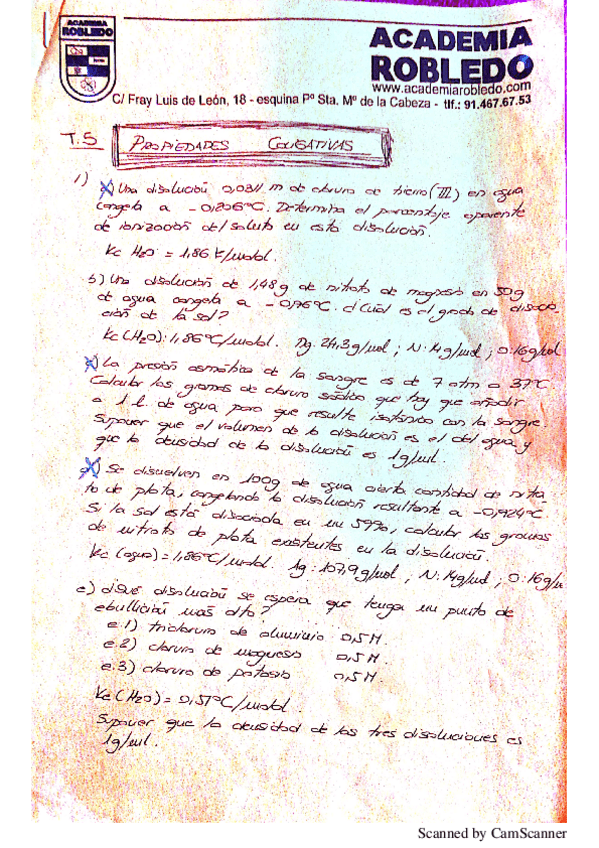 ACADEMIA
ROBLEDO
ACADEMIA
ROBLEDO
www.academiarobledo.com
C/ Fray Luis de León, 18 - esquina Pº Sta. Mª de la Cabeza - tlf.: 91.467.67.53
T.5 PROPIEDADES COLIGATIVAS
1)
a) Una disolución 0,0311 m de cloruro de hierro (III) en agua
congela a -0,206ºC. Determina el porcentaje aparente
de ionización del soluto en esta disolución.
Kc H2O = 1,86 K/molal.
b) Una disolución de 1,48g de nitrato de magnesio en 50g
de agua congela a -0,96ºC. ¿Cuál es el grado de disocia-
ción de la sal?
Kc(H2O): 1,86ºC/molal. Mg: 24,3g/mol; N: 14g/mol; O: 16g/mol
c) La presión osmótica de la sangre es de 7 atm a 37ºC
Calcular los gramos de cloruro sódico que hay que añadir
a 1 l. de agua para que resulte isotónica con la sangre.
Suponer que el volumen de la disolución es el del agua y
que la densidad de la disolución es 1g/ml.
d) Se disuelven en 100g de agua cierta cantidad de nitra-
to de plata, congelando la disolución resultante a -0,924ºC.
Si la sal está disociada en un 59%, calcular los gramos
de nitrato de plata existentes en la disolución.
Kc (agua) = 1,86ºC/molal. Ag: 107,9g/mol; N: 14g/mol; O: 16g/m
e) ¿Qué disolución se espera que tenga un punto de
ebullición más alto?
e.1) tricloruro de aluminio 0,5M.
e.2) cloruro de magnesio 0,5M.
e.3) cloruro de potasio 0,5M.
Ke (H2O) = 0,51ºC/molal.
Suponer que la densidad de las tres disoluciones es
1g/ml.
Scanned by CamScanner